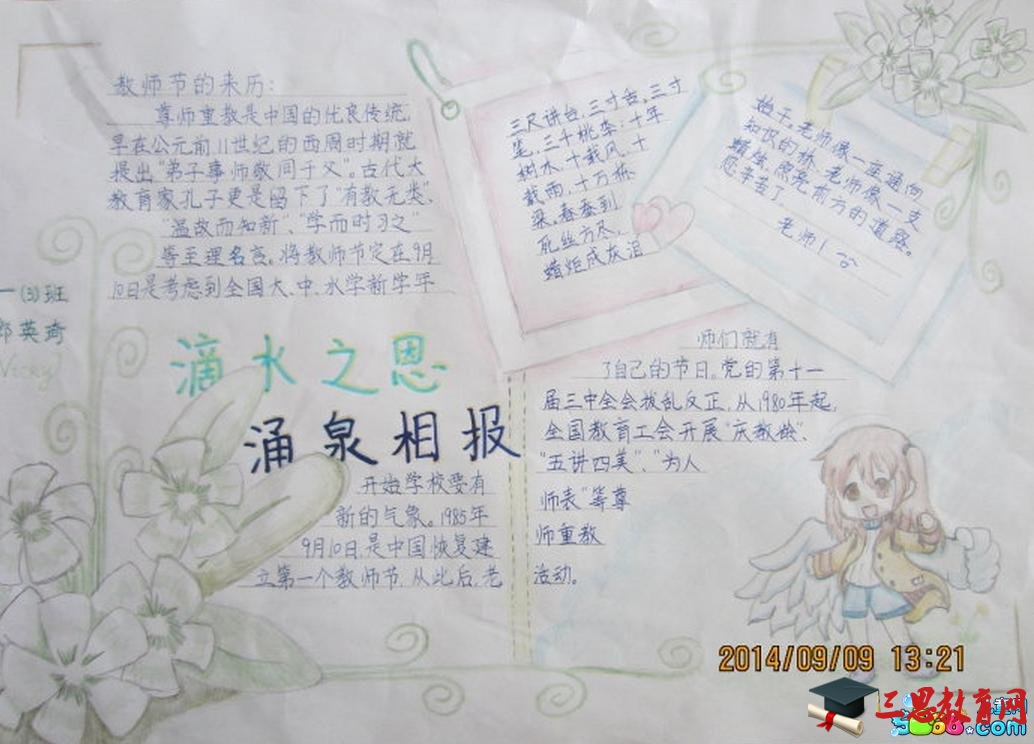 教师节的来历:
尊师重教是中国的优良传统,
早在公元前11世纪的西周时期就
提出“弟子事师敬同于父”。古代大
教育家孔子更是留下了“有教无类”、
“温故而知新”、“学而时习之”
等至理名言。将教师节定在9月
10日是考虑到全国大、中、小学新学年
三尺讲台,三寸舌,三寸
笔,三千桃李;十年
树木,十载风,十
载雨,十万栋
梁,春蚕到
死丝方尽,
蜡炬成灰泪
始干。老师像一座通向
知识的桥,老师像一支
蜡烛,照亮前方的道路。
您辛苦了
老师!
一(3)班
英琦
Vicky
滴水之恩
涌泉相报
开始学校要有
新的气象。1985年
9月10日,是中国恢复建
立第一个教师节,从此后,老
师们就有
了自己的节日。党的第十一
届三中全会拨乱反正,从1980年起,
全国教育工会开展
“五讲四美”、“为人
师表”等尊
师重教
活动。
2014/09/09 13:21
三思教育网
.com